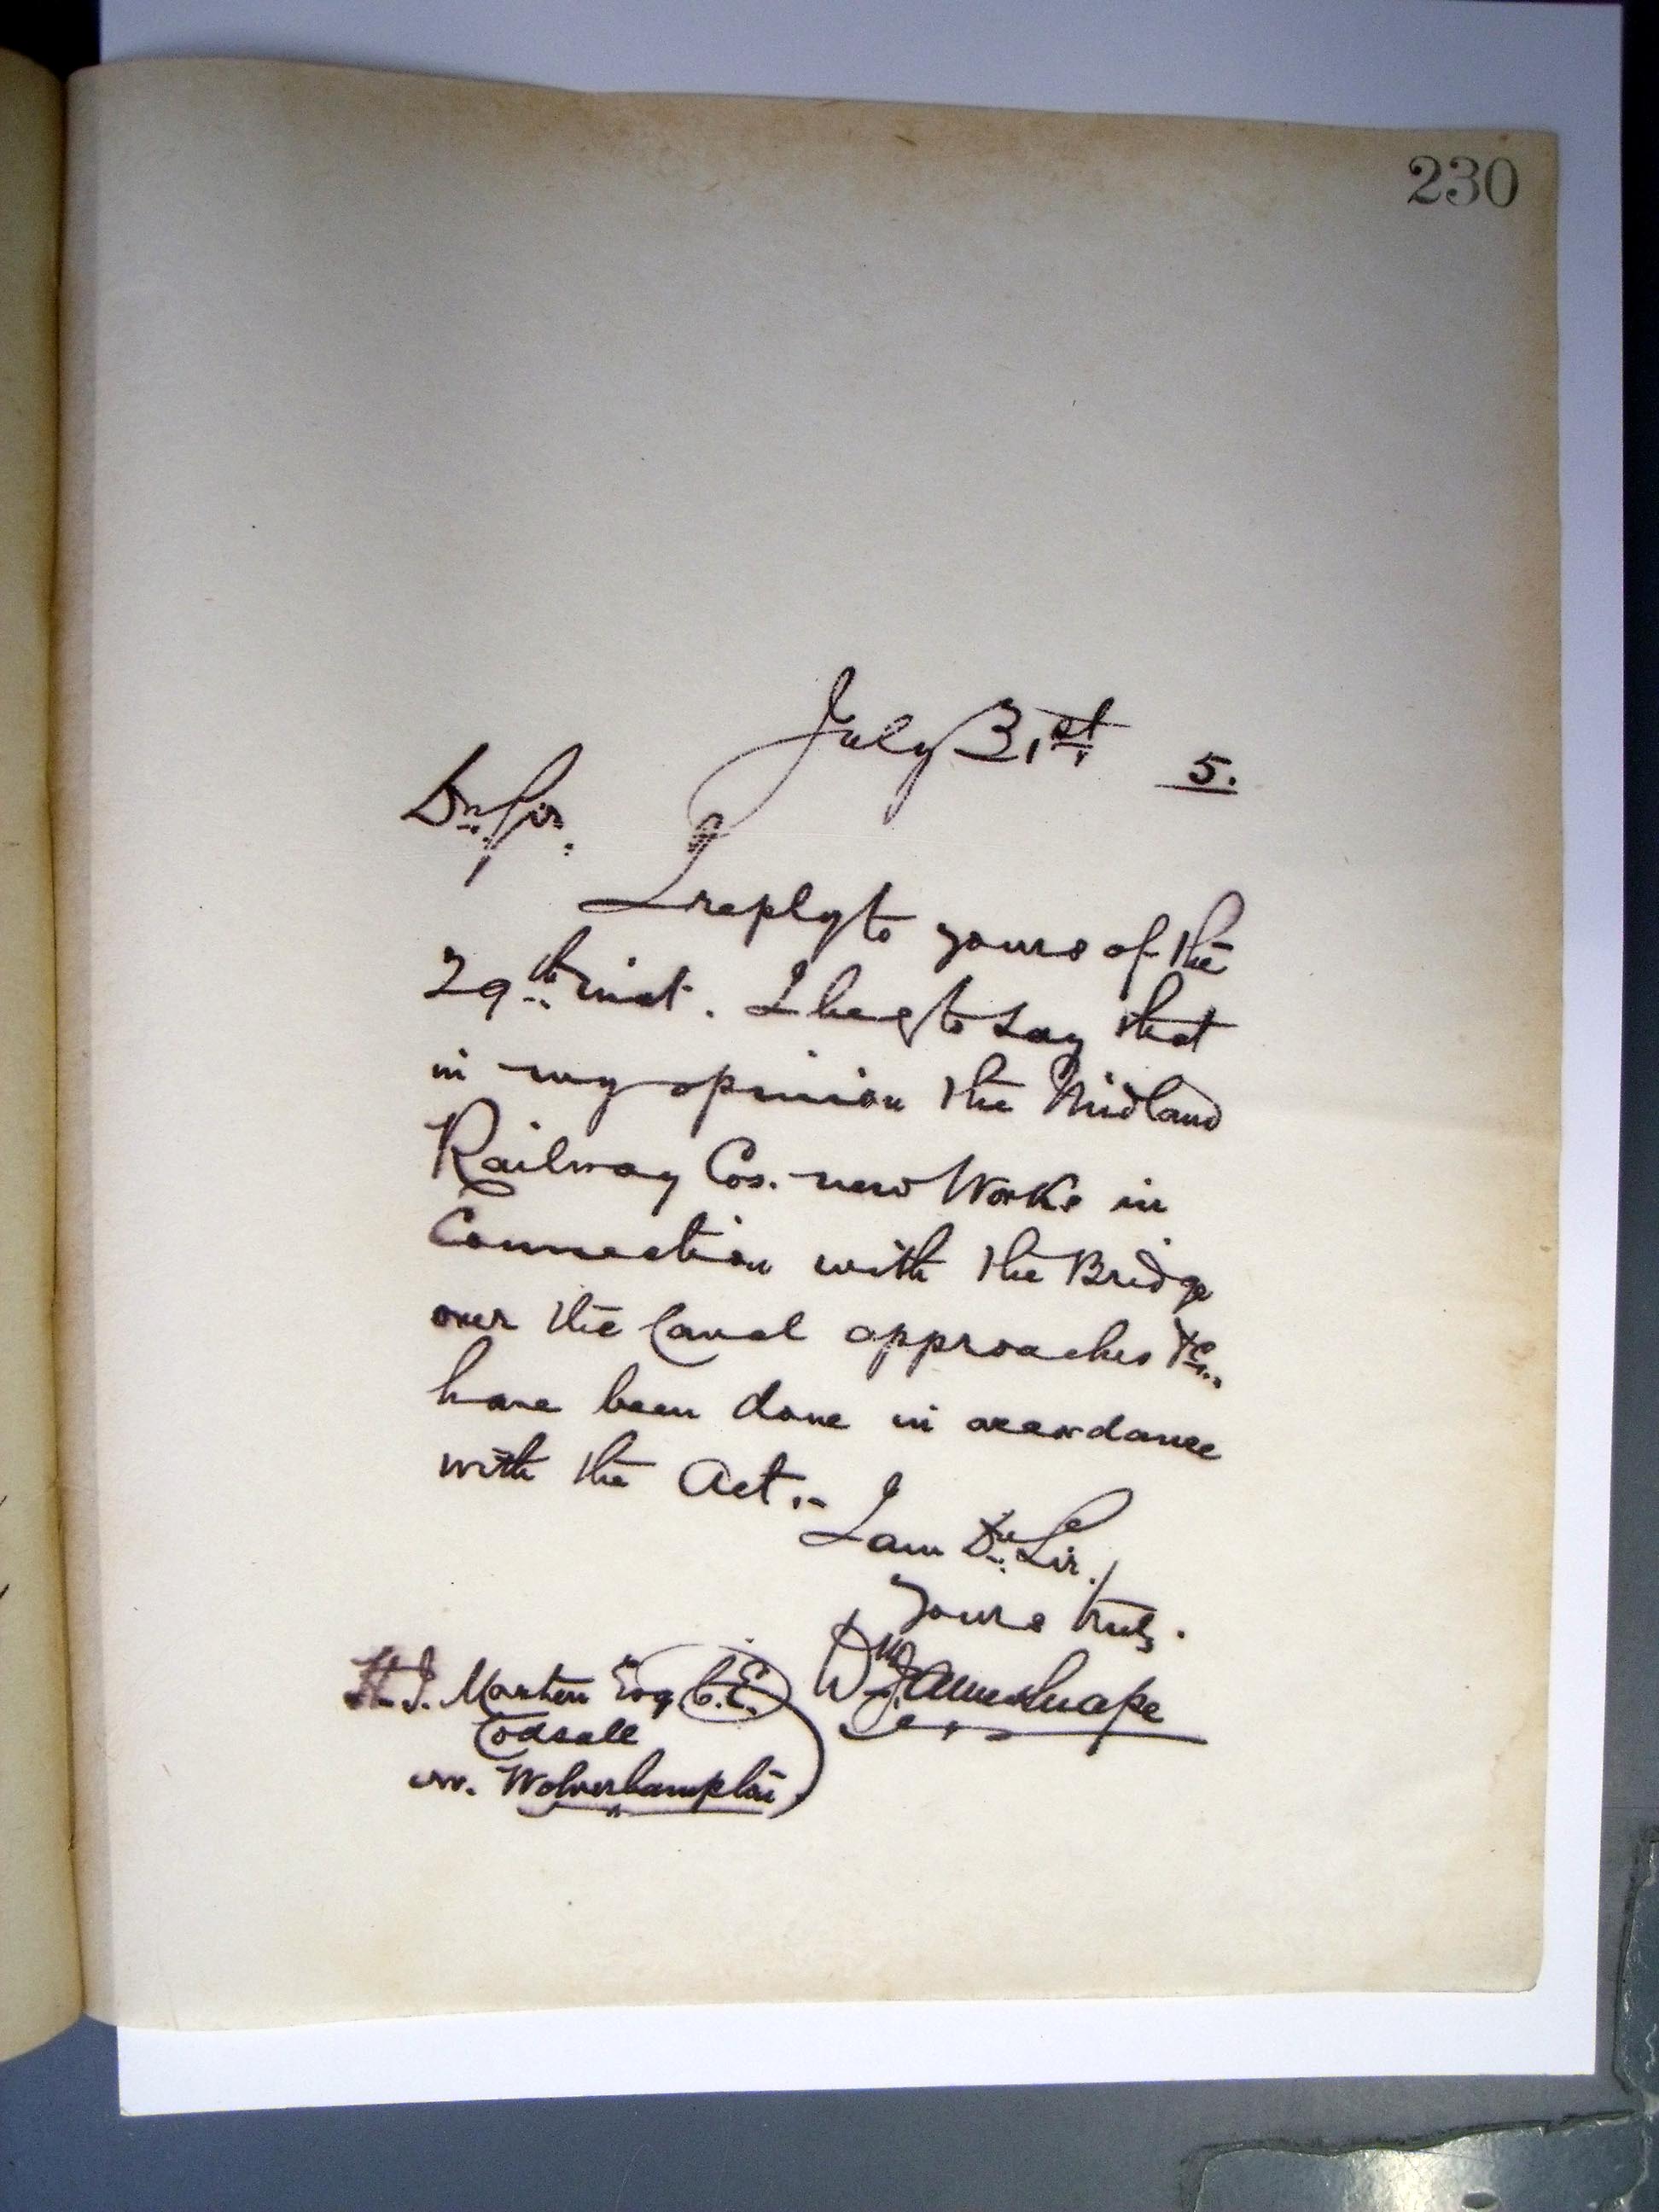 230
July 31st 5.
Dr Sir.
I reply to yours of the
29th inst. I beg to say that
in my opinion the Midland
Railway Cos. new Works in
Connection with the Bridge
over the Canal approaches &c..
have been done in accordance
with the Act.-
I am Dr Sir.
yours truly.
H. J. Marten Esq C.E.
Codsall
nr. Wolverhampton